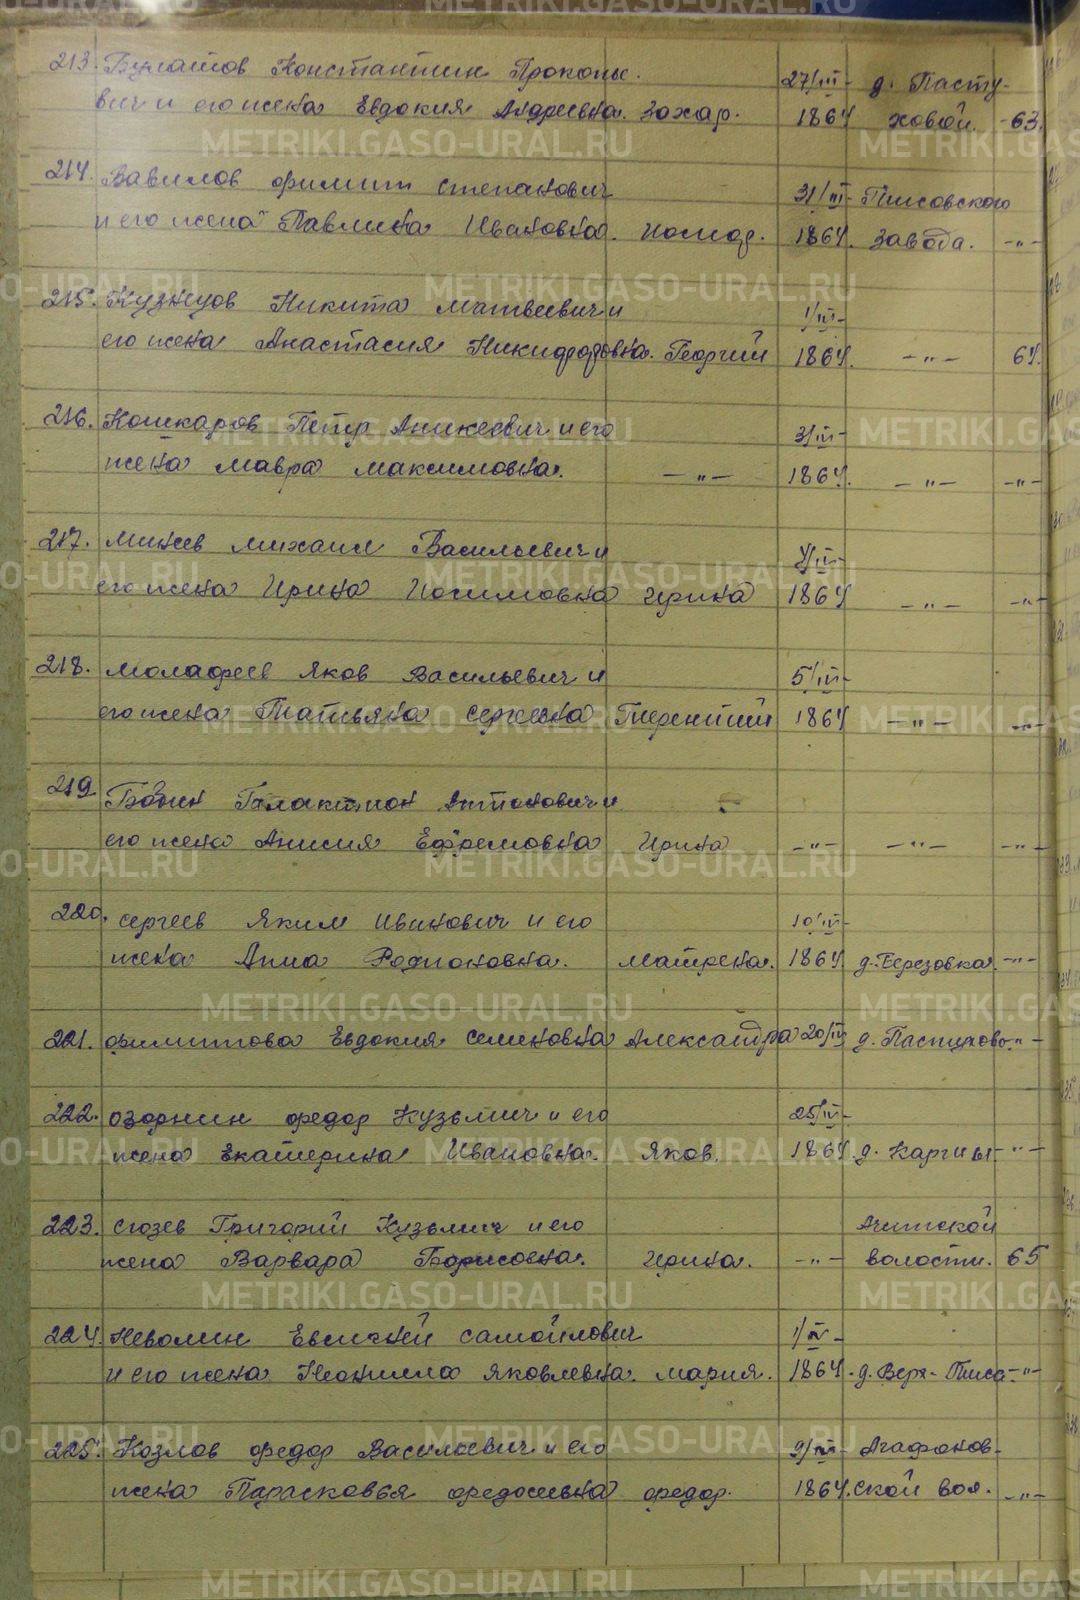 213. Булатов Константин Прокопье- 27/III- д. Пасту-
вич и его жена Евдокия Андреевна. Захар. 1864 ховой. -63.
214. Вавилов Филипп Степанович 31/III- Тисовского
и его жена Павлина Ивановна. 1864. завода. -"-
215. Кузнецов Никита Матвеевич и 1/IV-
его жена Анастасия Никифоровна. Георгий 1864. -"- 64.
216. Кошкаров Петр Аникеевич и его 3/IV-
жена Мавра Максимовна. -"- 1864. -"- -"-
217. Минеев Михаил Васильевич и 4/IV-
его жена Ирина Иосимовна Ирина 1864 -"- -"-
218. Малафеев Яков Васильевич и 5/IV-
его жена Татьяна Сергеевна Терентий 1864 -"- -"-
219. Галактион Антонович и
его жена Анисия Ефремовна Ирина -"- -"- -"-
220. Сергеев Яким Иванович и его 10/IV-
жена Анна Родионовна. Матрена. 1864 д. Березовка. -"-
221. Филиппова Евдокия Семеновна Александра 20/IV д. Пастухово. -"-
222. Озорнин Федор Кузьмич и его 25/IV-
жена Екатерина Ивановна. Яков. 1864. д. Каргины -"-
223. Сюзев Григорий Кузьмич и его Ачитской
жена Варвара Борисовна. Ирина. -"- волости. 65
224. Неволин Евсигней Самойлович 1/IV-
и его жена Неонилла Яковлевна. Мария. 1864. д. Верх-Тиса -"-
225. Козлов Федор Васильевич и его Агафонов-
жена Парасковья Федосеевна Федор. 1864. ской вол. -"-
METRIKI.GASO-URAL.RU